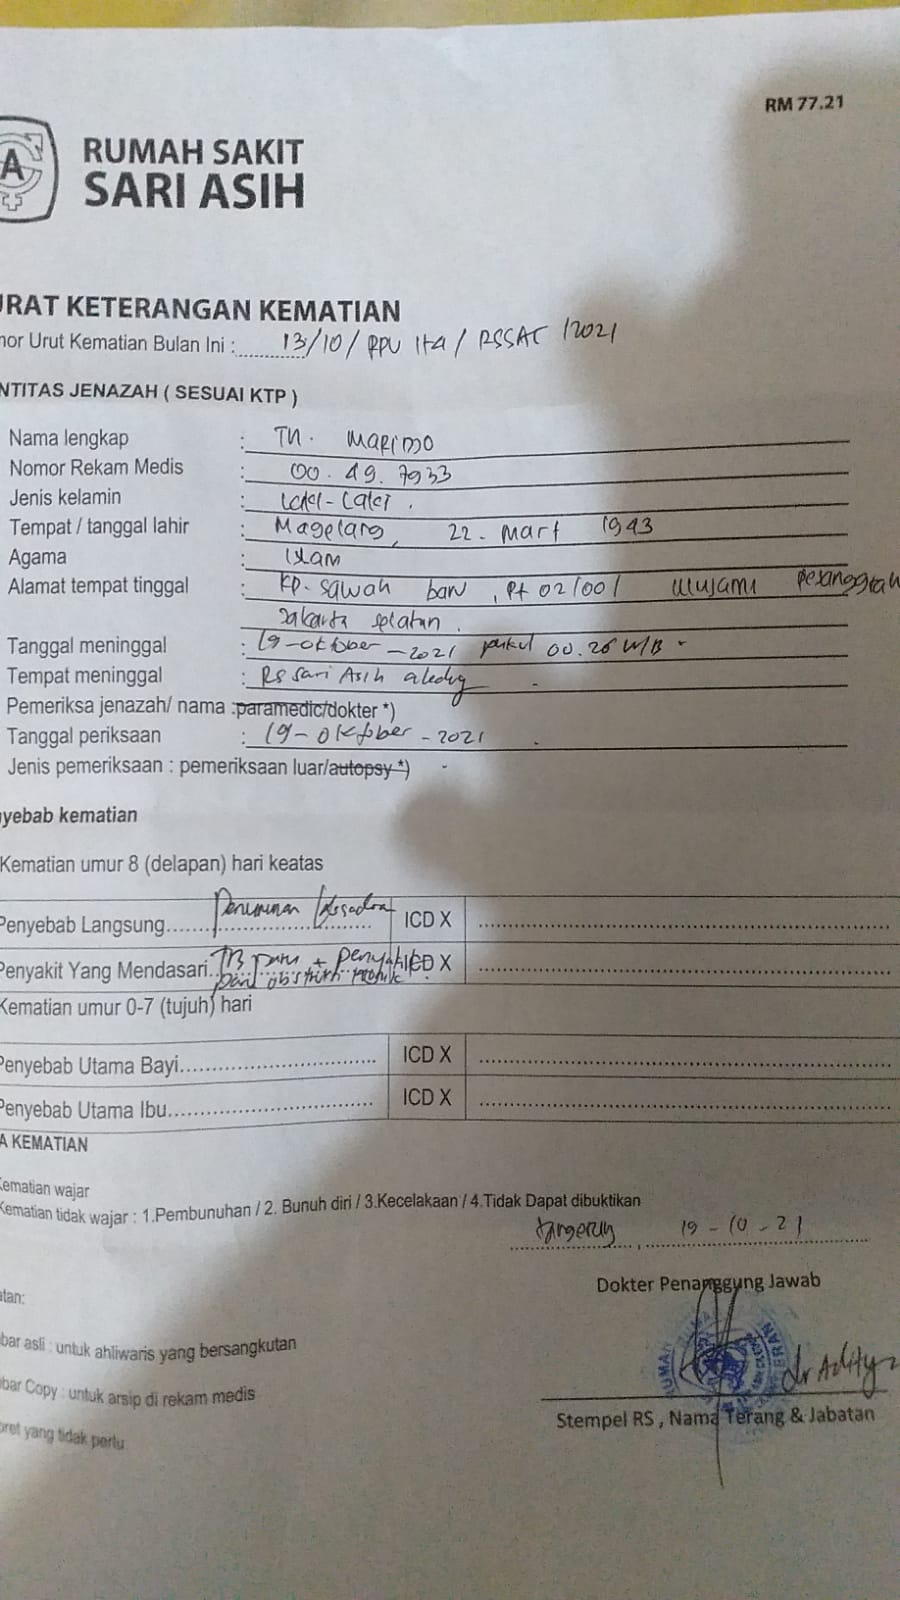 RM 77.21
A
RUMAH SAKIT
SARI ASIH
URAT KETERANGAN KEMATIAN
nor Urut Kematian Bulan Ini : 13/10/ RPU /RSSAC /2021
NTITAS JENAZAH ( SESUAI KTP )
Nama lengkap : TN.
Nomor Rekam Medis : 00.49.7933
Jenis kelamin : Laki-Laki.
Tempat / tanggal lahir : Magelang, 22. Mart 1943
Agama : Islam
Alamat tempat tinggal : KP. Sawah baru, Rt 02/001 Ulujami Pesanggrah
Jakarta selatan.
Tanggal meninggal : 19-oktober-2021 pukul 00.26 WIB -
Tempat meninggal : RS Sari Asih
Pemeriksa jenazah/ nama :paramedic/dokter *)
Tanggal periksaan : 19-oktober-2021
Jenis pemeriksaan : pemeriksaan luar/autopsy *)
yebab kematian
Kematian umur 8 (delapan) hari keatas
Penyebab Langsung....... Penurunan ICD X
Penyakit Yang Mendasari. TB paru + Penyakit ICD X
paru
Kematian umur 0-7 (tujuh) hari
Penyebab Utama Bayi....... ICD X
Penyebab Utama Ibu....... ICD X
A KEMATIAN
Kematian wajar
Kematian tidak wajar : 1.Pembunuhan / 2. Bunuh diri / 3.Kecelakaan / 4.Tidak Dapat dibuktikan
Tangerang, 19-10-21
Dokter Penanggung Jawab
atan:
bar asli : untuk ahliwaris yang bersangkutan
bar Copy : untuk arsip di rekam medis
dr Aditya
oret yang tidak perlu
Stempel RS , Nama Terang & Jabatan